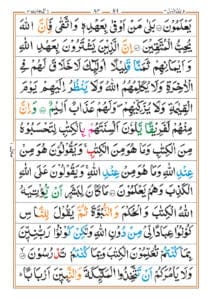 يَعْلَمُوْنَ ۝ بَلٰى مَنْ اَوْفٰى بِعَهْدِهٖ وَاتَّقٰى فَاِنَّ اللّٰهَ
يُحِبُّ الْمُتَّقِيْنَ ۝ اِنَّ الَّذِيْنَ يَشْتَرُوْنَ بِعَهْدِ اللّٰهِ
وَاَيْمَانِهِمْ ثَمَنًا قَلِيْلًا اُولٰٓئِكَ لَا خَلَاقَ لَهُمْ فِي
الْاٰخِرَةِ وَلَا يُكَلِّمُهُمُ اللّٰهُ وَلَا يَنْظُرُ اِلَيْهِمْ يَوْمَ
الْقِيٰمَةِ وَلَا يُزَكِّيْهِمْ ۪ وَلَهُمْ عَذَابٌ اَلِيْمٌ ۝ وَاِنَّ
مِنْهُمْ لَفَرِيْقًا يَّلْوٗنَ اَلْسِنَتَهُمْ بِالْكِتٰبِ لِتَحْسَبُوْهُ
مِنَ الْكِتٰبِ وَمَا هُوَ مِنَ الْكِتٰبِ ۚ وَيَقُوْلُوْنَ هُوَ مِنْ
عِنْدِ اللّٰهِ وَمَا هُوَ مِنْ عِنْدِ اللّٰهِ ۚ وَيَقُوْلُوْنَ عَلَى اللّٰهِ
الْكَذِبَ وَهُمْ يَعْلَمُوْنَ ۝ مَا كَانَ لِبَشَرٍ اَنْ يُّؤْتِيَهُ
اللّٰهُ الْكِتٰبَ وَالْحُكْمَ وَالنُّبُوَّةَ ثُمَّ يَقُوْلَ لِلنَّاسِ
كُوْنُوْا عِبَادًا لِّيْ مِنْ دُوْنِ اللّٰهِ وَلٰكِنْ كُوْنُوْا رَبّٰنِيّٖنَ
بِمَا كُنْتُمْ تُعَلِّمُوْنَ الْكِتٰبَ وَبِمَا كُنْتُمْ تَدْرُسُوْنَ ۝
وَلَا يَاْمُرَكُمْ اَنْ تَتَّخِذُوا الْمَلٰٓئِكَةَ وَالنَّبِيّٖنَ اَرْبَابًا